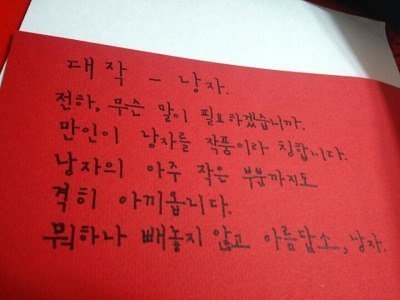 대작 - 낭자.
전하, 무슨 말이 필요하겠습니까.
만인이 낭자를 작품이라 칭합니다.
낭자의 아주 작은 부분까지도
격히 아끼옵니다.
뭐하나 빼놓지 않고 아름답소, 낭자.